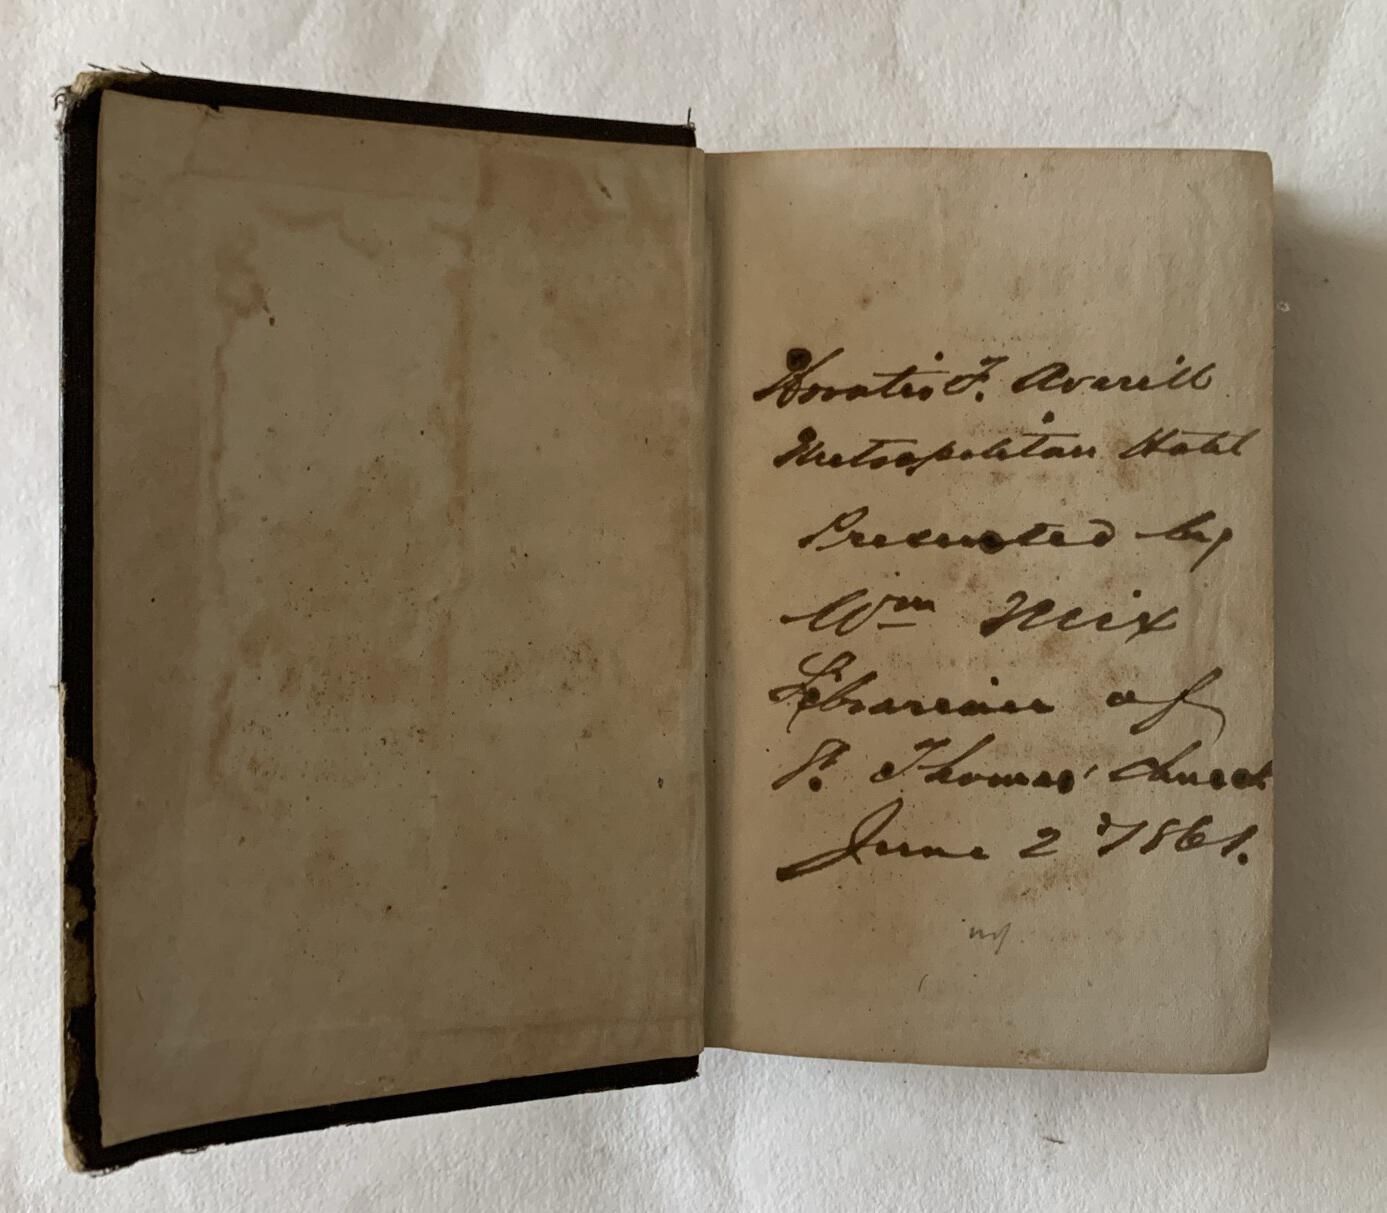 Horatio F. Averill
Metropolitan Hotel
Presented by
Wm Meix
Librarian of
St. Thomas' church
June 2 1861.